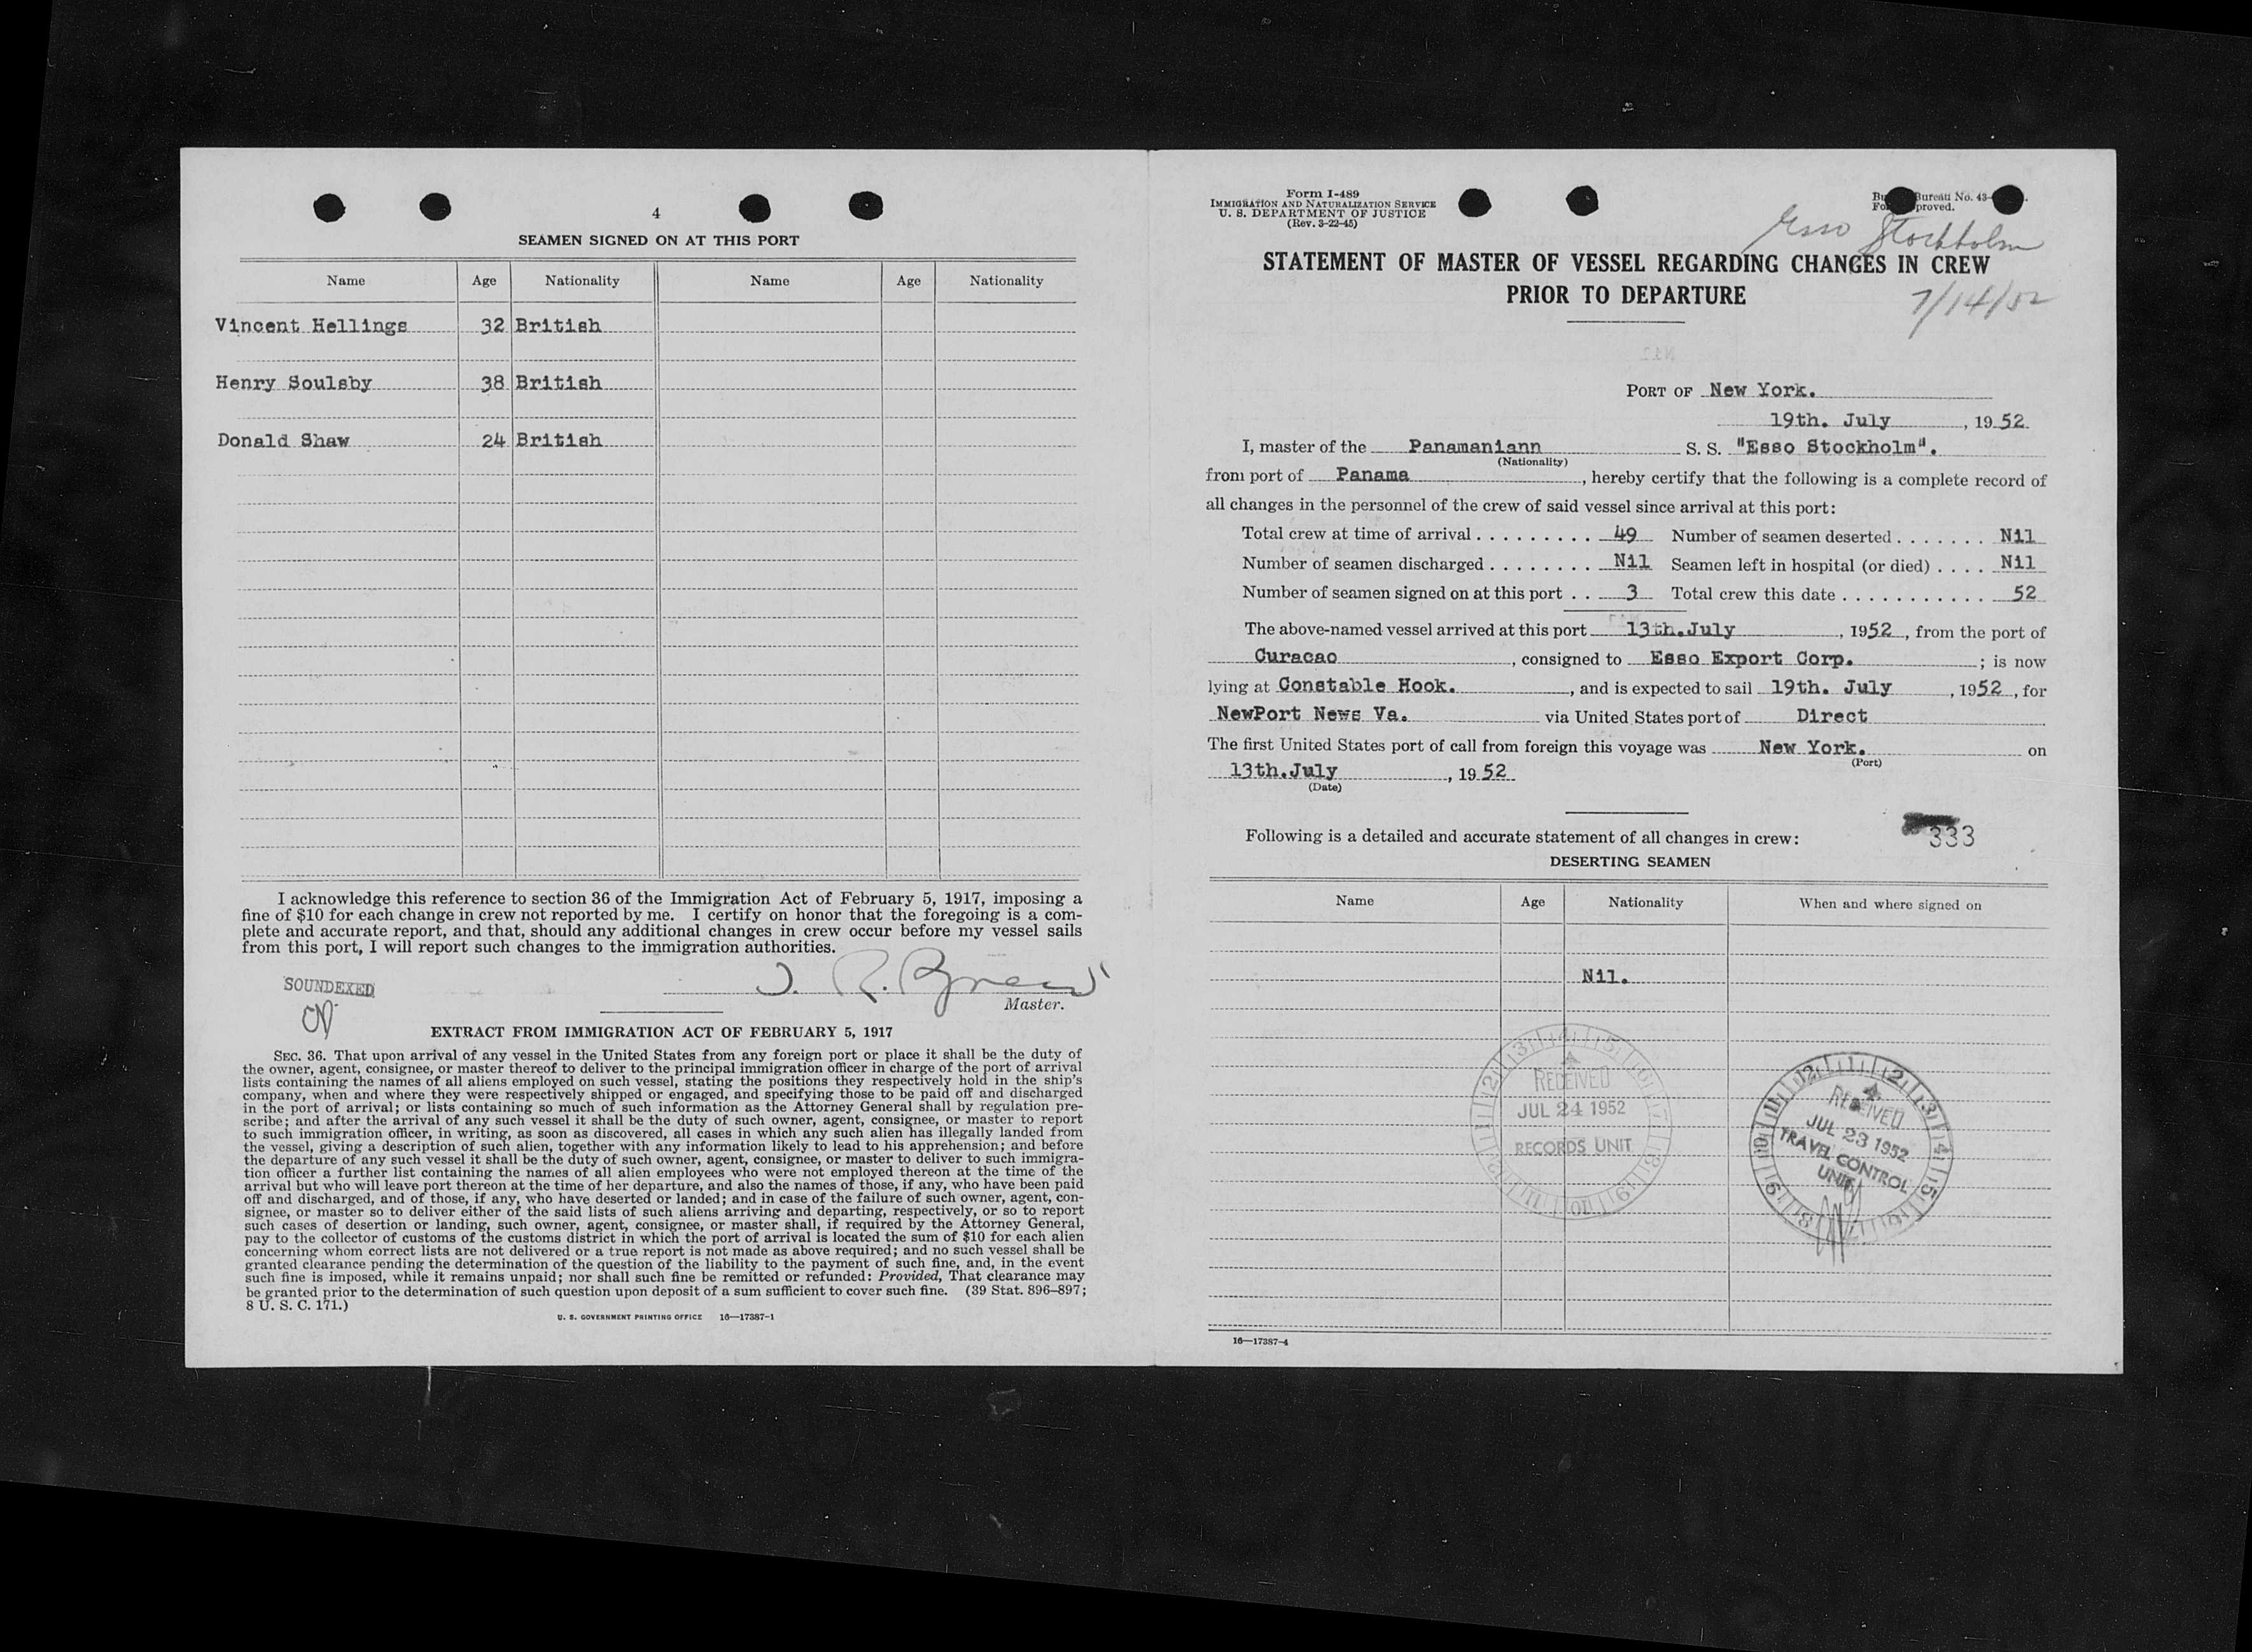 4
SEAMEN SIGNED ON AT THIS PORT
Name Age Nationality Name Age Nationality
Vincent Hellings 32 British
Henry Soulsby 38 British
Donald Shaw 24 British
I acknowledge this reference to section 36 of the Immigration Act of February 5, 1917, imposing a
fine of $10 for each change in crew not reported by me. I certify on honor that the foregoing is a com-
plete and accurate report, and that, should any additional changes in crew occur before my vessel sails
from this port, I will report such changes to the immigration authorities.
SOUNDEXED
Master.
EXTRACT FROM IMMIGRATION ACT OF FEBRUARY 5, 1917
SEC. 36. That upon arrival of any vessel in the United States from any foreign port or place it shall be the duty of
the owner, agent, consignee, or master thereof to deliver to the principal immigration officer in charge of the port of arrival
lists containing the names of all aliens employed on such vessel, stating the positions they respectively hold in the ship's
company, when and where they were respectively shipped or engaged, and specifying those to be paid off and discharged
in the port of arrival; or lists containing so much of such information as the Attorney General shall by regulation pre-
scribe; and after the arrival of any such vessel it shall be the duty of such owner, agent, consignee, or master to report
to such immigration officer, in writing, as soon as discovered, all cases in which any such alien has illegally landed from
the vessel, giving a description of such alien, together with any information likely to lead to his apprehension; and before
the departure of any such vessel it shall be the duty of such owner, agent, consignee, or master to deliver to such immigra-
tion officer a further list containing the names of all alien employees who were not employed thereon at the time of the
arrival but who will leave port thereon at the time of her departure, and also the names of those, if any, who have been paid
off and discharged, and of those, if any, who have deserted or landed; and in case of the failure of such owner, agent, con-
signee, or master so to deliver either of the said lists of such aliens arriving and departing, respectively, or so to report
such cases of desertion or landing, such owner, agent, consignee, or master shall, if required by the Attorney General,
pay to the collector of customs of the customs district in which the port of arrival is located the sum of $10 for each alien
concerning whom correct lists are not delivered or a true report is not made as above required; and no such vessel shall be
granted clearance pending the determination of the question of the liability to the payment of such fine, and, in the event
such fine is imposed, while it remains unpaid; nor shall such fine be remitted or refunded: Provided, That clearance may
be granted prior to the determination of such question upon deposit of a sum sufficient to cover such fine. (39 Stat. 896–897;
8 U. S. C. 171.)
U. S. GOVERNMENT PRINTING OFFICE 16—17387-1
Form I-489
IMMIGRATION AND NATURALIZATION SERVICE
U. S. DEPARTMENT OF JUSTICE
(Rev. 3-22-45)
Bureau No. 43-
Esso Stockholm
STATEMENT OF MASTER OF VESSEL REGARDING CHANGES IN CREW
PRIOR TO DEPARTURE
7/14/52
PORT OF New York.
19th. July, 1952
I, master of the Panamaniann S. S. "Esso Stockholm".
(Nationality)
from port of Panama, hereby certify that the following is a complete record of
all changes in the personnel of the crew of said vessel since arrival at this port:
Total crew at time of arrival . . . . . . . . . 49 Number of seamen deserted . . . . . . . Nil
Number of seamen discharged . . . . . . . . Nil Seamen left in hospital (or died) . . . . Nil
Number of seamen signed on at this port . . 3 Total crew this date . . . . . . . . . . . 52
The above-named vessel arrived at this port 13th.July, 1952, from the port of
Curacao, consigned to Esso Export Corp.; is now
lying at Constable Hook., and is expected to sail 19th. July, 1952, for
NewPort News Va. via United States port of Direct
The first United States port of call from foreign this voyage was New York. on
(Port)
13th.July, 1952
(Date)
333
Following is a detailed and accurate statement of all changes in crew:
DESERTING SEAMEN
Name Age Nationality When and where signed on
Nil.
RECEIVED
JUL 24 1952
RECORDS UNIT
RECEIVED
JUL 23 1952
TRAVEL CONTROL
UNIT
16—17387-4